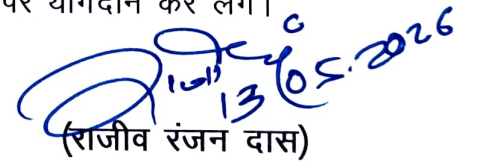 पर योगदान कर लेंगे।
13/05.2026
(राजीव रंजन दास)